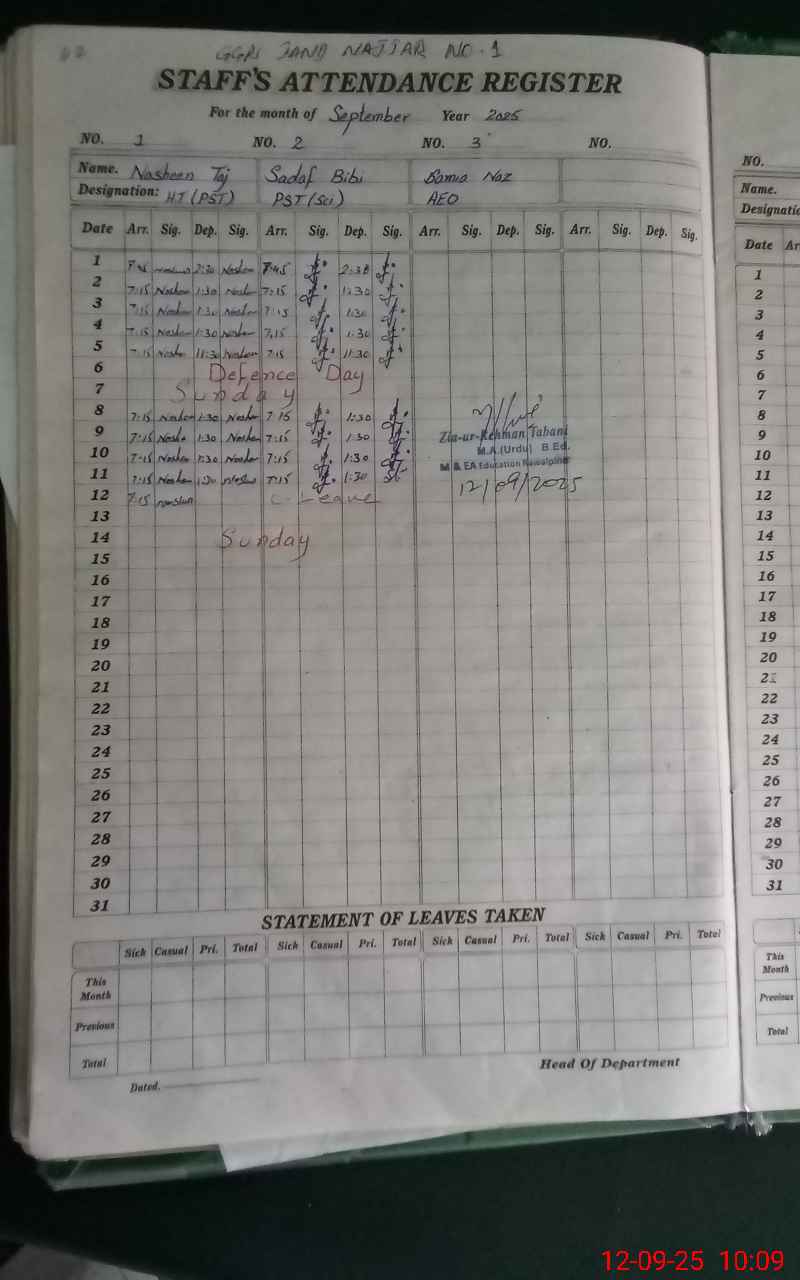 GGPS JAND NAJJAR NO-1
STAFF'S ATTENDANCE REGISTER
For the month of September Year 2025
NO. 1 NO. 2 NO. 3 NO.
Name. Nosheen Taj Sadaf Bibi Naz
Designation: HT (PST) PST (Sci) AEO
Date Arr. Sig. Dep. Sig. Arr. Sig. Dep. Sig. Arr. Sig. Dep. Sig. Arr. Sig. Dep. Sig.
1 2:30 Noshen 7:45 2:30
2 7:15 Noshen 1:30 Noshen 7:15 1:30
3 7:15 Noshen 1:30 Noshen 7:15 1:30
4 7:15 Noshen 1:30 Noshen 7:15 1:30
5 7:15 Noshen 11:30 Noshen 7:15 11:30
6 Defence Day
7 Sunday
8 7:15 Noshen 1:30 Noshen 7:15 1:30
9 7:15 Noshen 1:30 Noshen 7:15 1:30
10 7:15 Noshen 1:30 Noshen 7:15 1:30
11 7:15 Noshen 1:30 7:15 1:30
12 7:15 C-Leave
Zia-ur-Rehman Tabani
M.A.(Urdu) B.Ed.
M & EA Education Rawalpindi
12/09/2025
13
14 Sunday
15
16
17
18
19
20
21
22
23
24
25
26
27
28
29
30
31
STATEMENT OF LEAVES TAKEN
Sick Casual Pri. Total Sick Casual Pri. Total Sick Casual Pri. Total Sick Casual Pri. Total
This Month
Previous
Total
Head Of Department
Dated.
NO.
Name.
Designatio
Date Ar
1
2
3
4
5
6
7
8
9
10
11
12
13
14
15
16
17
18
19
20
21
22
23
24
25
26
27
28
29
30
31
This
Month
Previous
Total
12-09-25 10:09